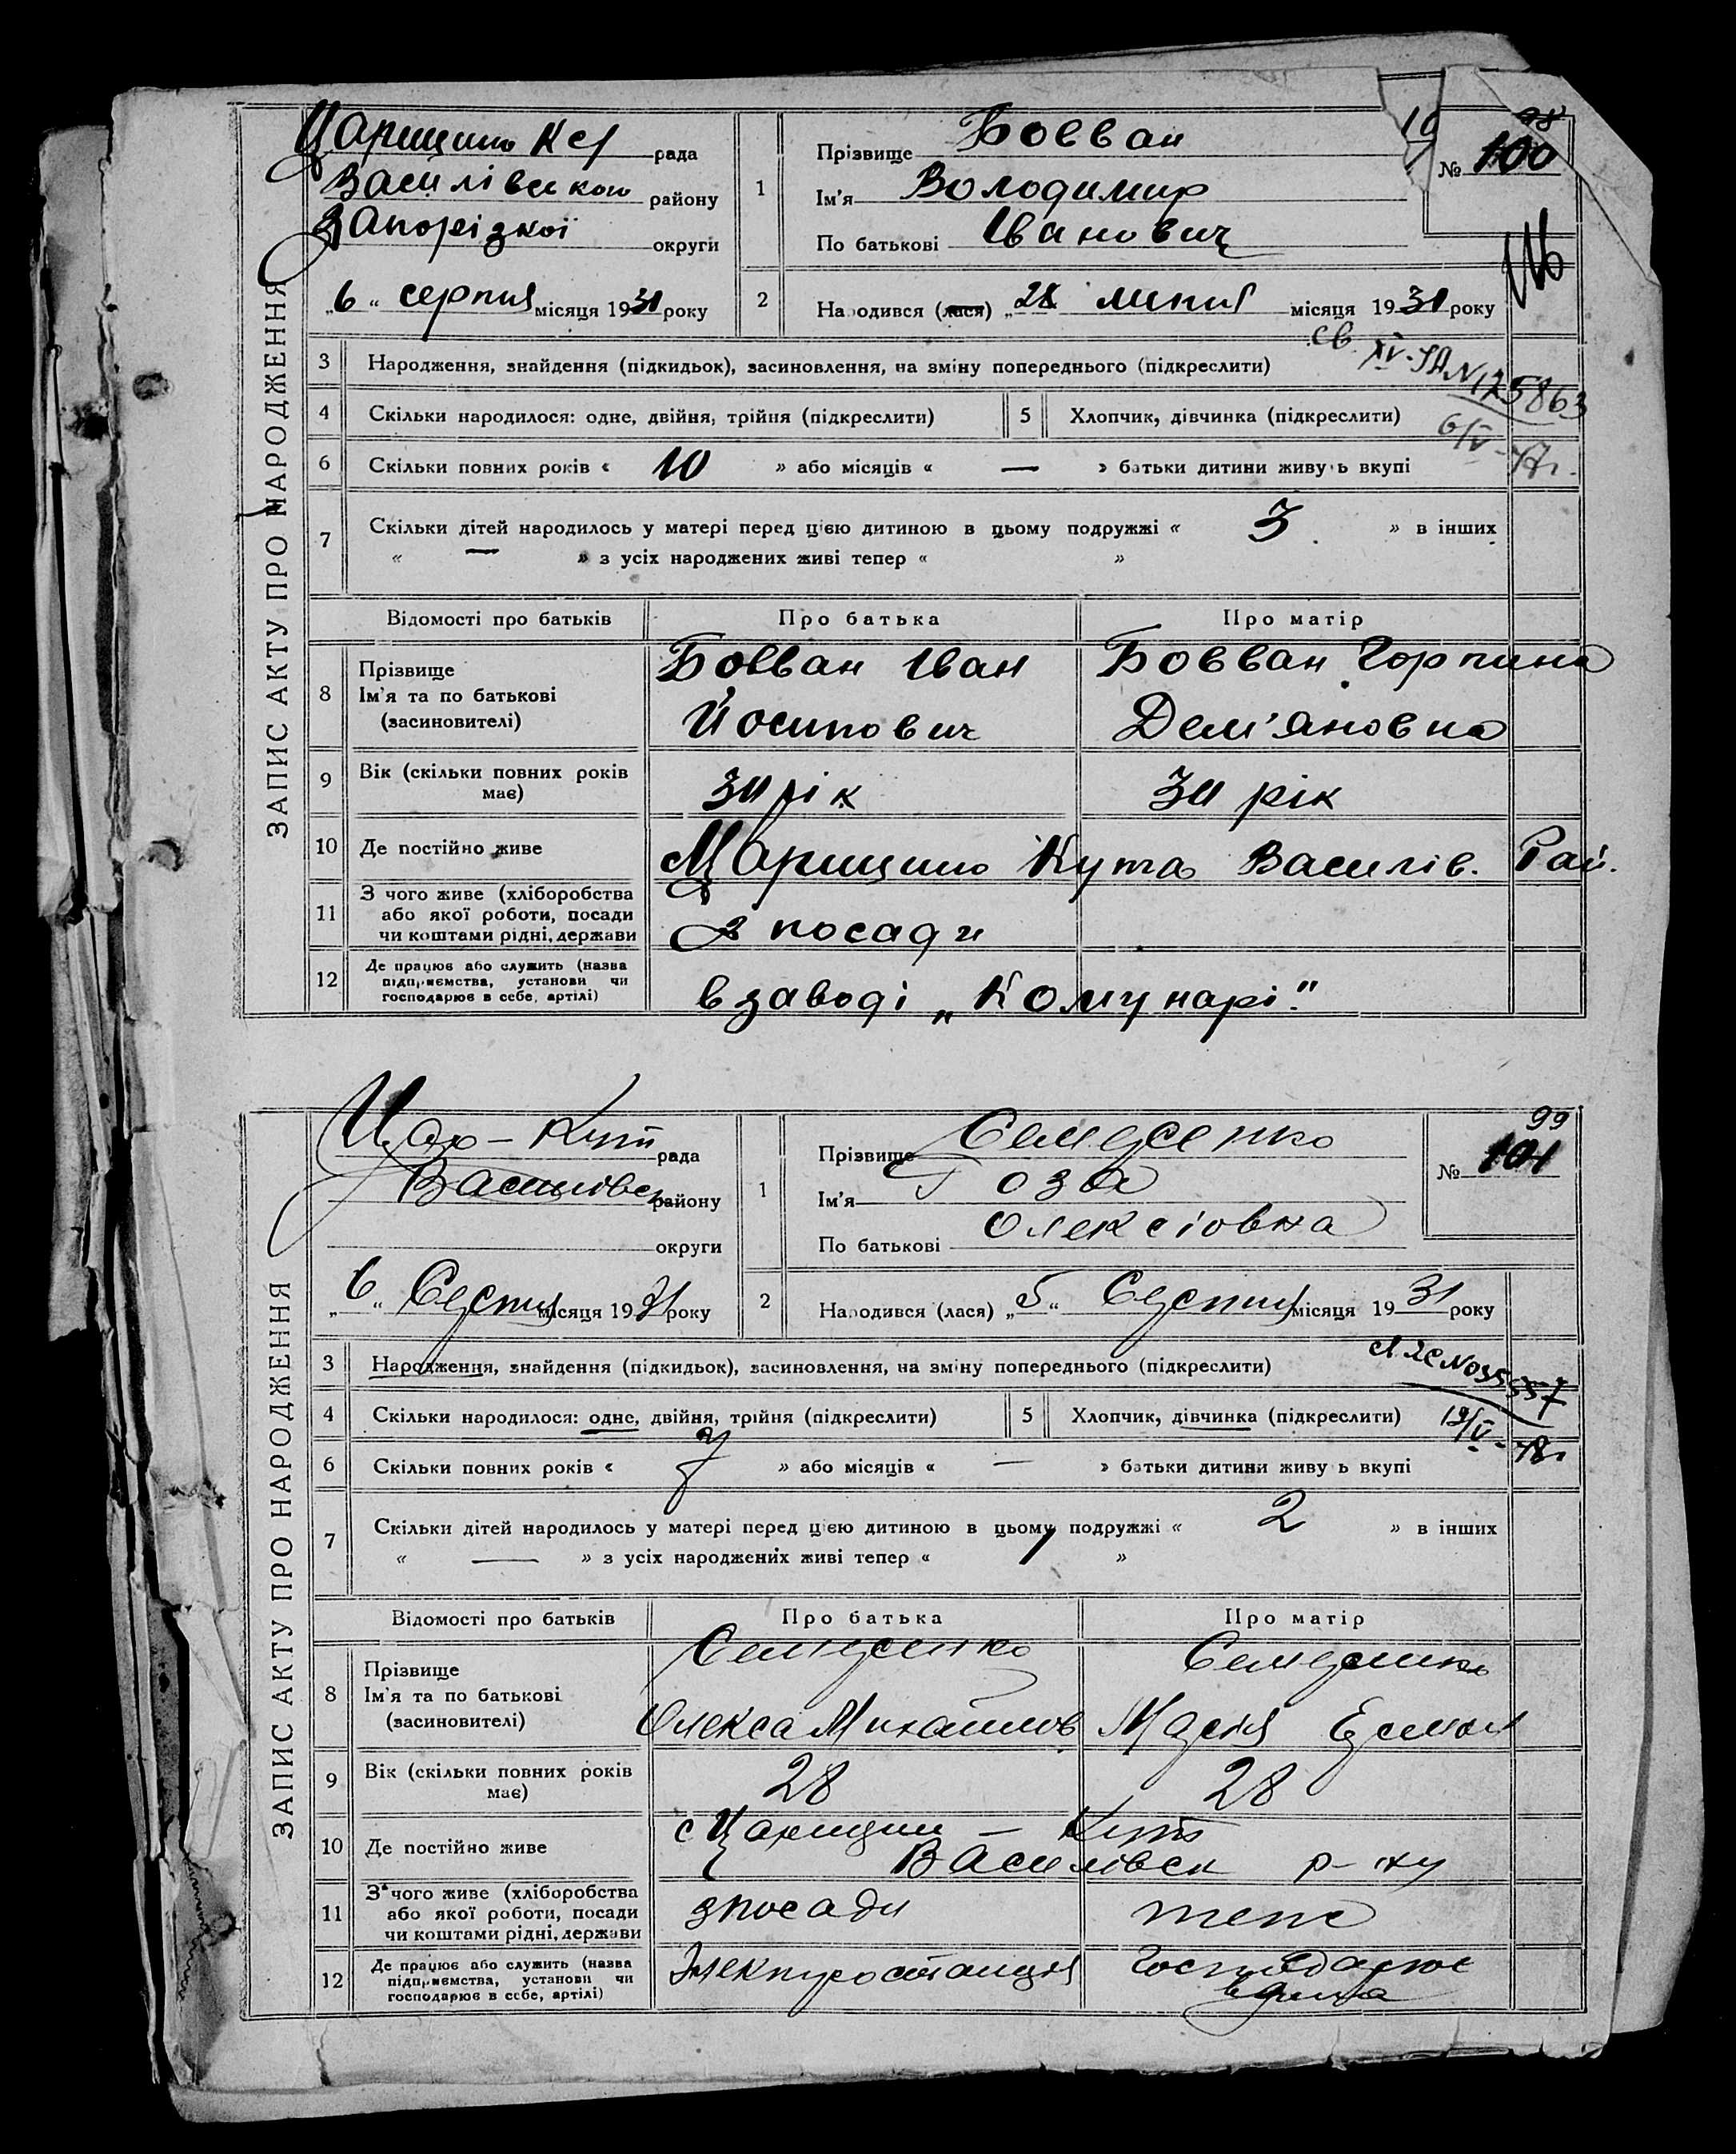 ЗАПИС АКТУ ПРО НАРОДЖЕННЯ
Царицино Кут рада
Василівského району
Запорізкої округи
„6“ серпня місяця 1931 року
1
Прізвище Бовван
Ім'я Володимир
По батькові Іванович
№ 100
98
2
Народився (лася) „28 липня місяця 1931 року
св. №125863
6/V-47г.
3 Народження, знайдення (підкидьок), засиновлення, на зміну попереднього (підкреслити)
4 Скільки народилося: одне, двійня, трійня (підкреслити)
5 Хлопчик, дівчинка (підкреслити)
6 Скільки повних років « 10 » або місяців « — » батьки дитини живуть вкупі
7 Скільки дітей народилось у матері перед цією дитиною в цьому подружжі « 3 » в інших
« — » з усіх народжених живі тепер « »
Відомості про батьків Про батька Про матір
8
Прізвище
Ім'я та по батькові
(засиновителі)
Бовван Іван
Йосипович
Бовван Горпина
Дем'яновна
9
Вік (скільки повних років
має)
31 рік
31 рік
10 Де постійно живе
Царицино Кута Василів. Рай.
11
З чого живе (хліборобства
або якої роботи, посади
чи коштами рідні, держави
з посади
12
Де працює або служить (назва
підприємства, установи чи
господарює в себе, артілі)
в заводі „Комунарі“.
ЗАПИС АКТУ ПРО НАРОДЖЕННЯ
Цар-Кут рада
Василівск району
округи
„6“ Серпня місяця 1931 року
1
Прізвище Семеренко
Ім'я Роза
По батькові Олексіовна
99
№ 101
2
Народився (лася) „5“ Серпня місяця 1931 року
№035557
19/V-48г
3 Народження, знайдення (підкидьок), засиновлення, на зміну попереднього (підкреслити)
4 Скільки народилося: одне, двійня, трійня (підкреслити)
5 Хлопчик, дівчинка (підкреслити)
6 Скільки повних років « 7 » або місяців « — » батьки дитини живуть вкупі
7 Скільки дітей народилось у матері перед цією дитиною в цьому подружжі « 2 » в інших
« — » з усіх народжених живі тепер « 1 »
Відомості про батьків Про батька Про матір
8
Прізвище
Ім'я та по батькові
(засиновителі)
Семеренко
Олекса Михайлов
Семеренко
Марія
9
Вік (скільки повних років
має)
28
28
10 Де постійно живе
с Царицин — Кут
Василівск р-ну
11
З чого живе (хліборобства
або якої роботи, посади
чи коштами рідні, держави
з посади
теж
12
Де працює або служить (назва
підприємства, установи чи
господарює в себе, артілі)
Электростанция
Господарює